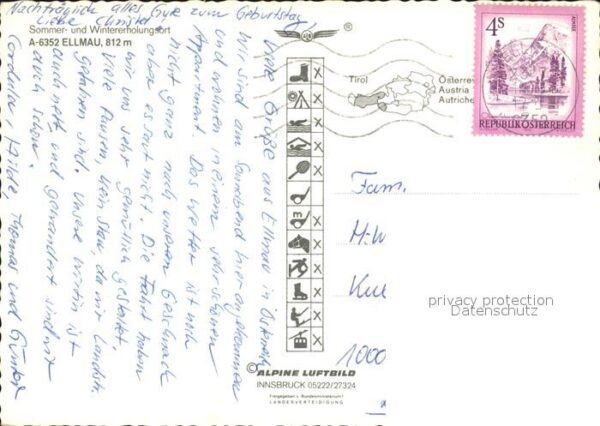 Nachträglich alles Gute zum Geburtstag,
Liebe Christel
Sommer- und Wintererholungsort
A-6352 ELLMAU, 812 m
viele Grüße aus Ellmau in Österreich
wir sind am Sonnabend hier angekommen
und wohnen in einem sehr schönen
Appartment. Das Wetter ist noch
nicht ganz nach unserem Geschmack
aber es regnet nicht. Die Fahrt haben
wir uns sehr gemütlich gestaltet.
viele Pausen, kein Stau, da wir Landstr.
gefahren sind. Unsere Wirtin ist
auch nett, und gewandert sind wir
auch schon.
Hilde Thomas und Günter
Tirol
Österreich
Austria
Autriche
4S
REPUBLIK ÖSTERREICH
6352
Fam.
1000
privacy protection
Datenschutz
© ALPINE LUFTBILD
INNSBRUCK 05222/27324
Freigegeben v. Bundesministerium f.
LANDESVERTEIDIGUNG